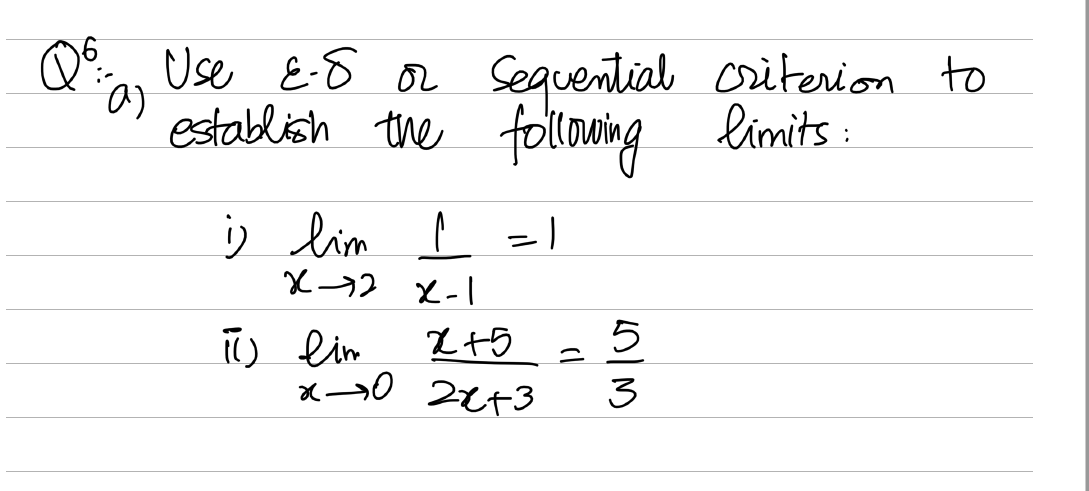 Q6:- a) Use ε-δ or Sequential criterion to
establish the following limits:
i) lim x→2 1/(x-1) = 1
ii) lim x→0 (x+5)/(2x+3) = 5/3